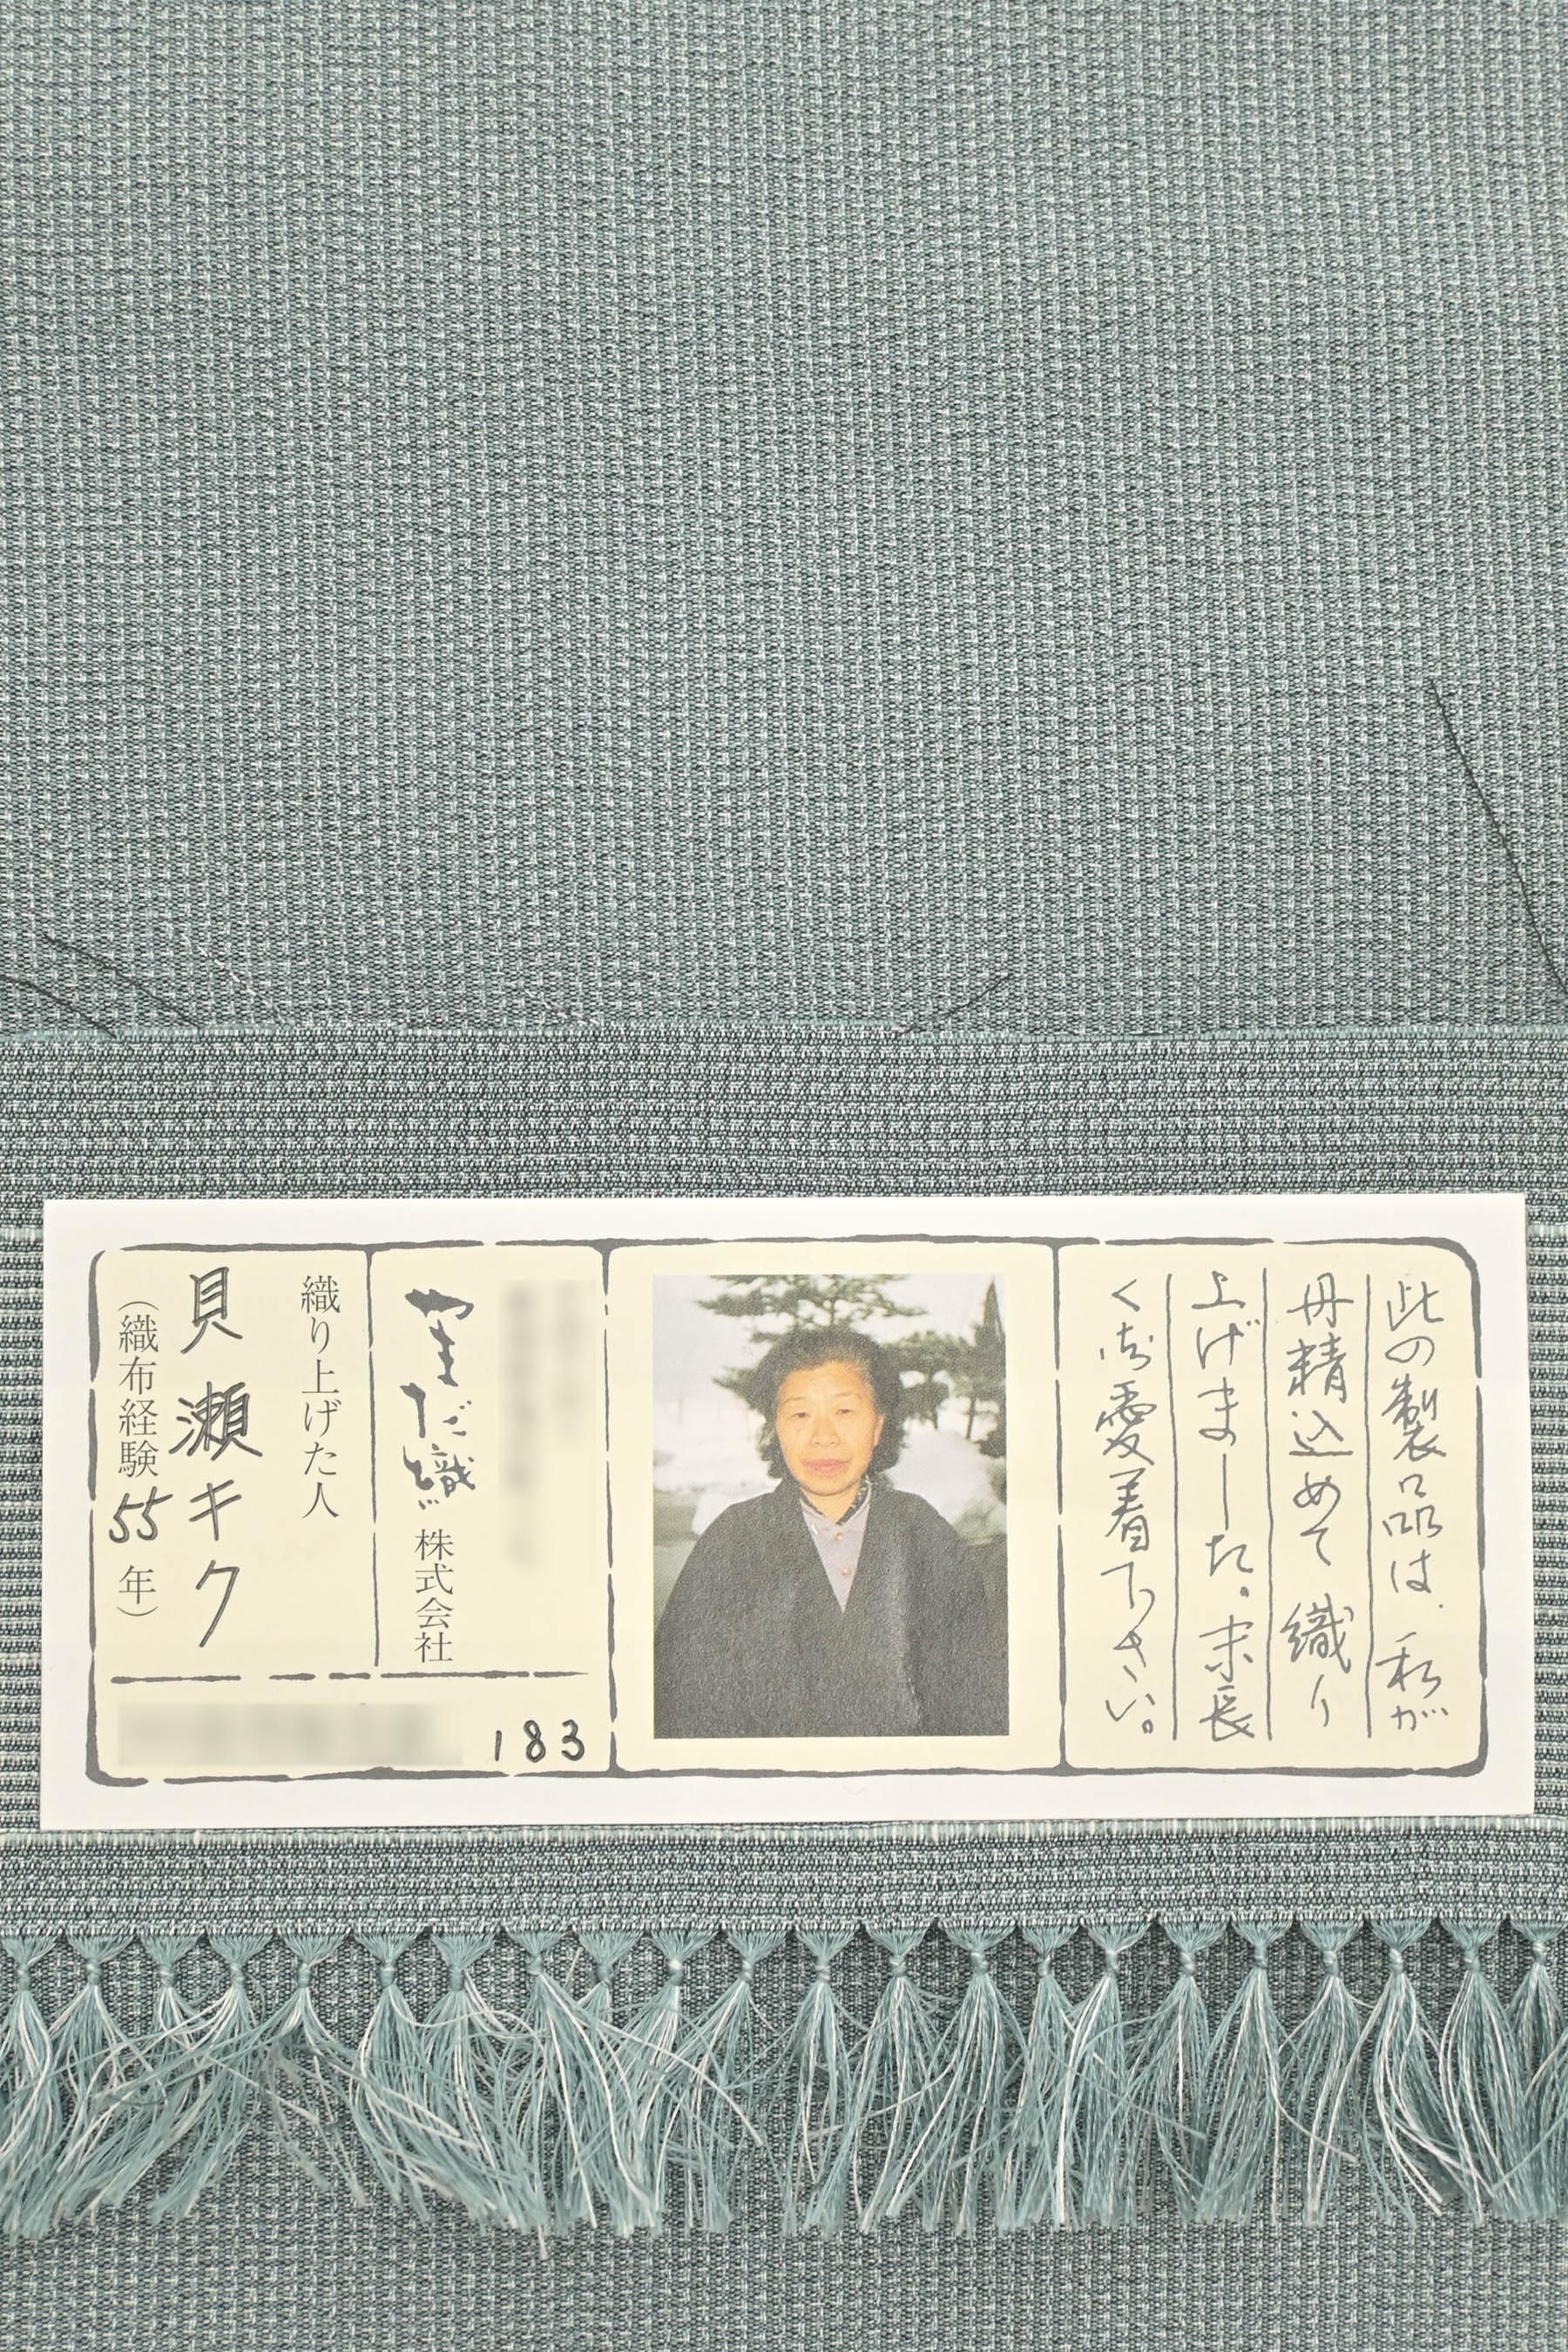 此の製品は、私が
丹精込めて織り
上げました。末長
くご愛着下さい。
やまだ織株式会社
織り上げた人
貝瀬キク
（織布経験55年）
183